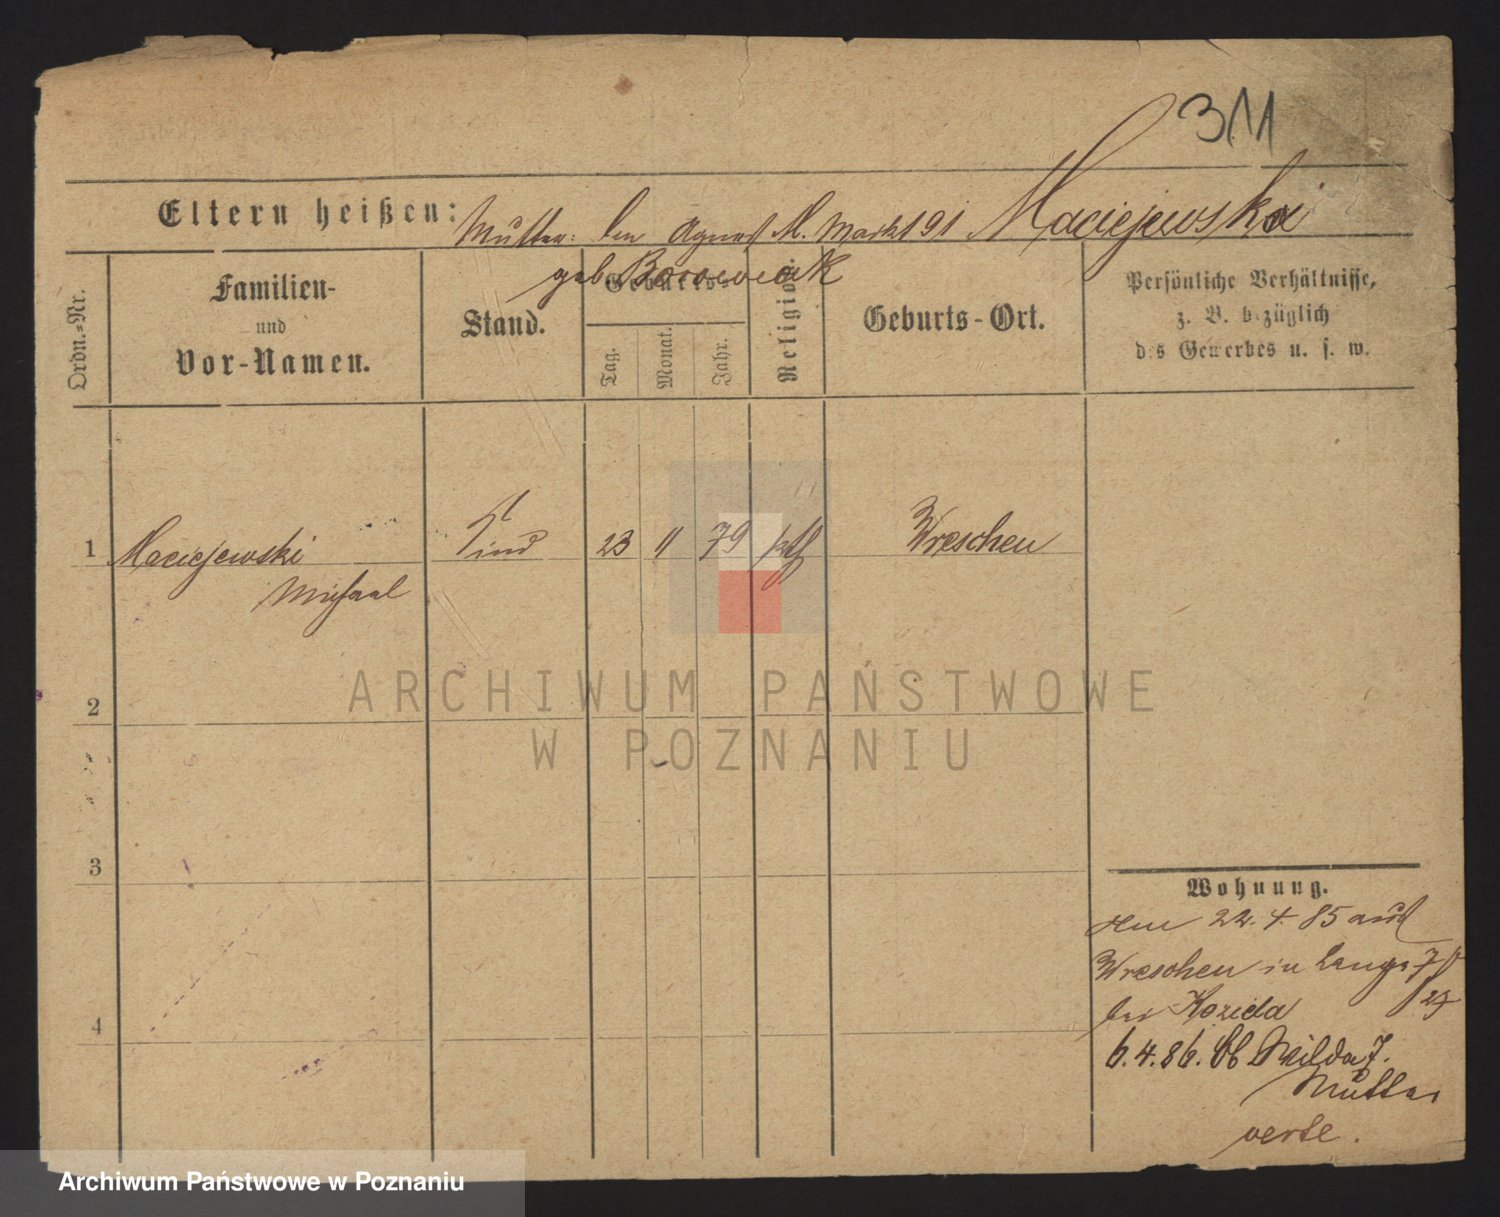 311
Eltern heißen: Mutter: Agnes M. Markt 91 Maciejewska
geb. Borowiak
Ordn.-Nr.
Familien-
und
Vor-Namen.
Stand.
Geburts-
Tag.
Monat.
Jahr.
Religion.
Geburts-Ort.
Persönliche Verhältnisse,
z. B. bezüglich
des Gewerbes u. s. w.
1 Maciejewski Kind 23 9 79 kth Wreschen
Michael
2
3
4
ARCHIWUM PAŃSTWOWE
W POZNANIU
Wohnung.
22. 4. 85 aus
Wreschen in Lange 7
bei Kozida
6. 4. 86. Wilda 7.
Mutter
verte.
Archiwum Państwowe w Poznaniu